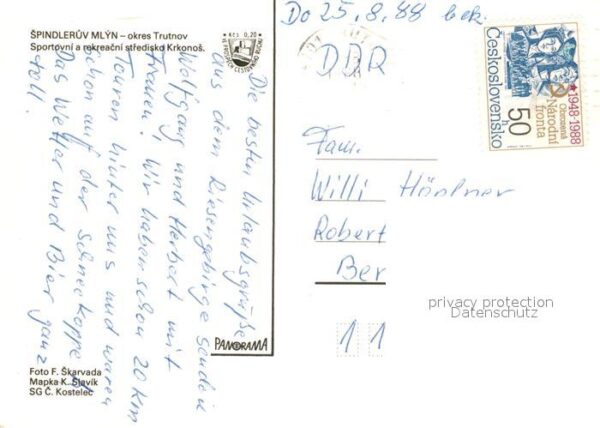 ŠPINDLERŮV MLÝN – okres Trutnov
Sportovní a rekreační středisko Krkonoš.
Kčs 0,20
Die besten Urlaubsgrüße
aus dem Riesengebirge senden
Wolfgang und Herbert mit
Frauen. Wir haben schon 20 km
Touren hinter uns und waren
schon auf der Schneekoppe.
Das Wetter und Bier ganz
toll.
Foto F. Škarvada
Mapka K. Slavík
SG Č. Kostelec
PANORAMA
Do 25.8.88 bek.
DDR
Fam.
Willi
Robert
Ber
11
Československo
50 h
1948-1988
Obrozená
Národní
fronta
privacy protection
Datenschutz